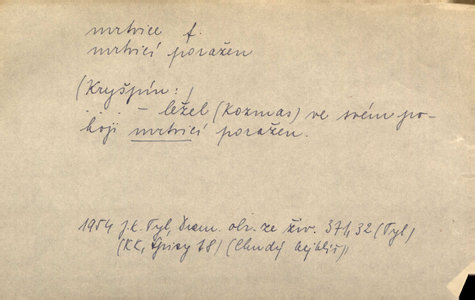 mrtvice f.
mrtvicí poražen
(Kryšpín:)
... – ležel (Kozmas) ve svém po-
koji mrtvicí poražen.
1954 J. K. Tyl, Dram. obr. ze živ. 371, 32 (Tyl)
(KK, Spisy 18) (Chudý kejklíř)